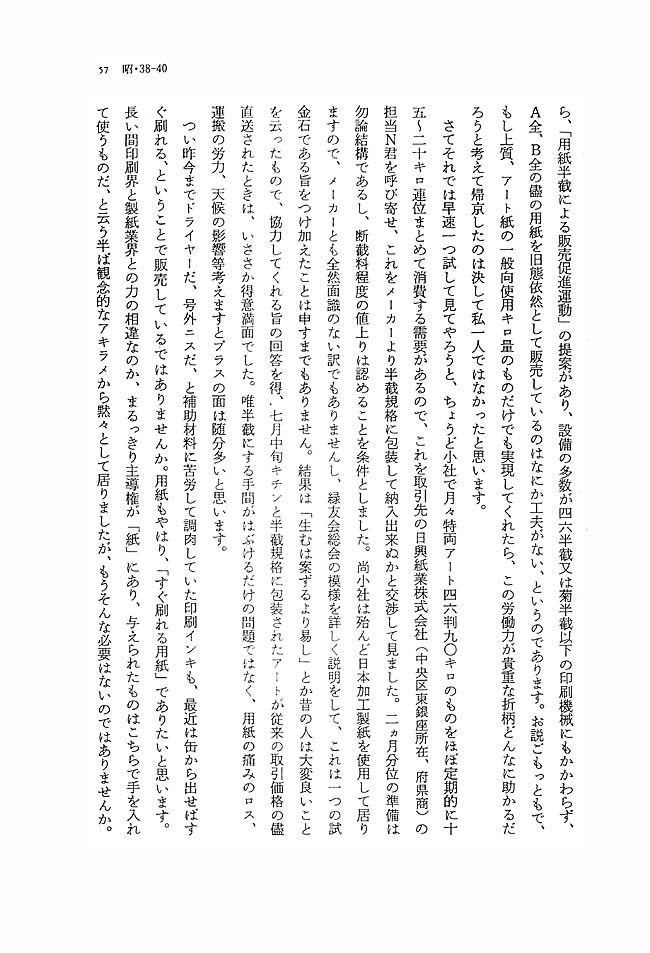 57 昭・38-40
ら、「用紙半截による販売促進運動」の提案があり、設備の多数が四六半截又は菊半截以下の印刷機械にもかかわらず、
A全、B全の儘の用紙を旧態依然として販売しているのはなにか工夫がない、というのであります。お説ごもっともで、
もし上質、アート紙の一般向使用キロ量のものだけでも実現してくれたら、この労働力が貴重な折柄どんなに助かるだ
ろうと考えて帰京したのは決して私一人ではなかったと思います。
さてそれでは早速一つ試して見てやろうと、ちょうど小社で月々特両アート四六判九〇キロのものをほぼ定期的に十
五〜二十キロ連位まとめて消費する需要があるので、これを取引先の日興紙業株式会社（中央区東銀座所在、府県商）の
担当N君を呼び寄せ、これをメーカーより半截規格に包装して納入出来ぬかと交渉して見ました。二ヵ月分位の準備は
勿論結構であるし、断截料程度の値上りは認めることを条件としました。尚小社は殆んど日本加工製紙を使用して居り
ますので、メーカーとも全然面識のない訳でもありませんし、緑友会総会の模様を詳しく説明をして、これは一つの試
金石である旨をつけ加えたことは申すまでもありません。結果は「生むは案ずるより易し」とか昔の人は大変良いこと
を云ったもので、協力してくれる旨の回答を得、七月中旬キチンと半截規格に包装されたアートが従来の取引価格の儘
直送されたときは、いささか得意満面でした。唯半截にする手間がはぶけるだけの問題ではなく、用紙の痛みのロス、
運搬の労力、天候の影響等考えますとプラスの面は随分多いと思います。
つい昨今までドライヤーだ、号外ニスだ、と補助材料に苦労して調肉していた印刷インキも、最近は缶から出せばす
ぐ刷れる、ということで販売しているではありませんか。用紙もやはり、「すぐ刷れる用紙」でありたいと思います。
長い間印刷界と製紙業界との力の相違なのか、まるっきり主導権が「紙」にあり、与えられたものはこちらで手を入れ
て使うものだ、と云う半ば観念的なアキラメから黙々として居りましたが、もうそんな必要はないのではありませんか。